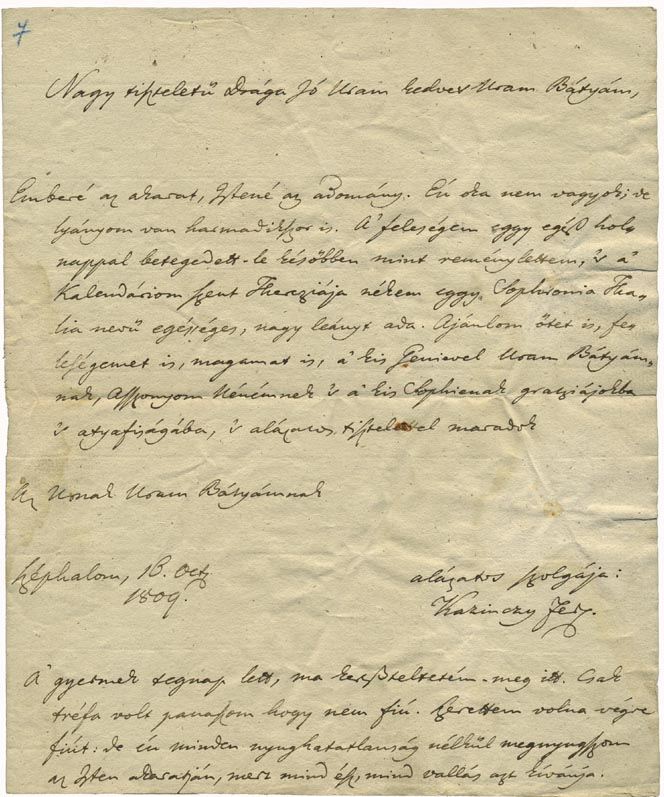 7
Nagy tiszteletű Drága Jó Uram kedves Uram Bátyám,
Emberé az akarat, Istené az adomány. Én oka nem vagyok; de
lyányom van harmadikszor is. A' feleségem eggy egész hol-
nappal betegedett-le későbben mint reménylettem, 's a'
Kalendáriom szent Theréziája nékem eggy Sophronia Tha-
lia nevű egésséges, nagy leányt ada. Ajánlom őtet is, fe-
leségemet is, magamat is, a' kis Genievel Uram Bátyám-
nak, Asszonyom Nénémnek 's a' kis Sophienak gratziájokba
's atyafiságába, 's alázatos tisztelettel maradok
Az Urnak Uram Bátyámnak
Széphalom, 16. Oct.
1809.
alázatos szolgája:
Kazinczy Ferz.
A' gyermek tegnap lett, ma kereszteltetém-meg itt. Csak
tréfa volt panaszom hogy nem fiú. Szerettem volna végre
fiút: de én minden nyughatatlanság nélkül megnyugszom
az Isten akaratján, mert mind ész, mind vallás azt kívánja.